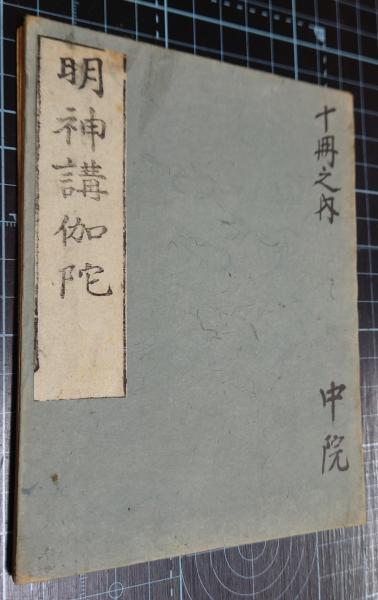 十冊之内
中院
明神講伽陀